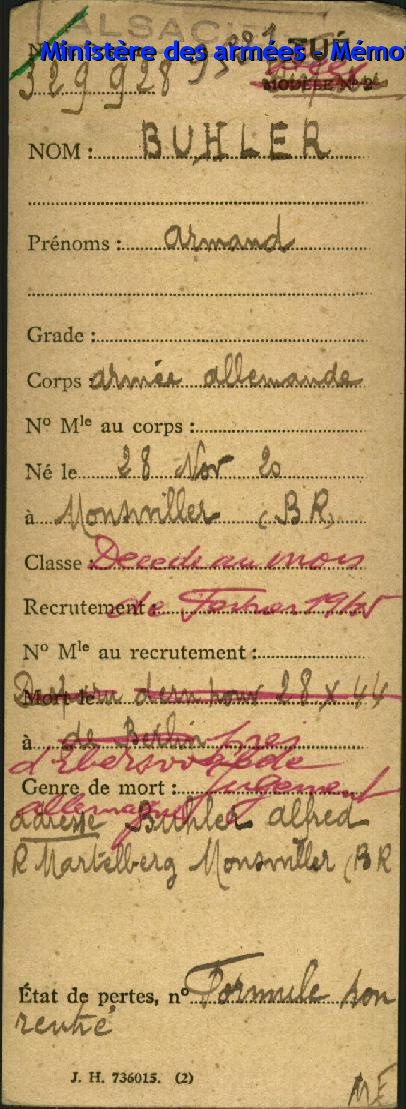 ALSACIEN
Ministère des armées - Mémo
N
TUÉ
329928
MODÈLE Nº 2
NOM : BUHLER
Prénoms : armand
Grade :
Corps : armée allemande
Nº Mle au corps :
Né le 28 Nov 20
à Monswiller (BR)
Classe Décédé au mois
Recrutement : de Février 1945
Nº Mle au recrutement :
Mort le Disparu 28 X 44
à de Berlin près
d'Eberswalde
Genre de mort : Jugement
allemagne
adresse Buhler alfred
R Martelberg Monswiller (BR
État de pertes, nº Formule non
rentré
J. H. 736015. (2)
ME